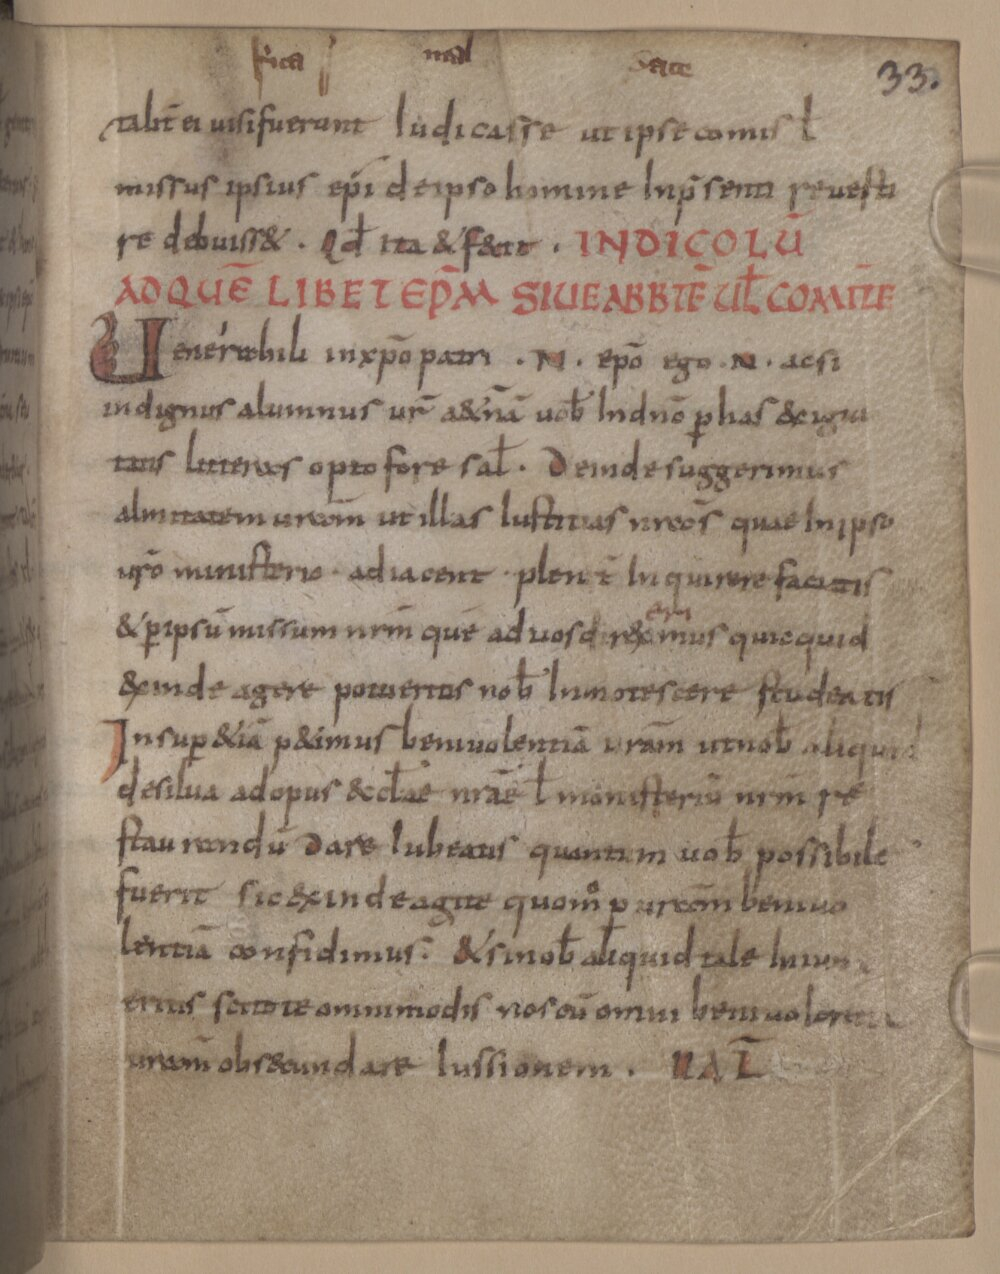 33.
talit̄ ei uisi fuerunt Iudicasse ut ipse comis ł
missus ipsius ep̄i de ipso homine In p̄senti reuesti
re debuiss&. Qđ ita & fecit. INDICOLŪ
AD QUĒ LIBET EP̄M SIUE ABBTĒ UŁ COMITE
Uenerabili in xp̄o patri . N . ep̄o ego . N . acsi
indignus alumnus ur̄ a&n̄a uob̄ In dn̄o p̱ has &igui
tatis litteras opto fore sał. Deinde suggerimus
almitatem uram̄ ut illas Iustitias nrāꝫ quae In ipso
ur̄o ministerio adiacent plen̄t Inquirere faciatis
& p̱ ipsū missum nrm̄ quē ad uos direximus quicquid
exinde agere potueritis nob̄ Innotescere studeatis
Insup̱ &iā p&imus beniuolentiā urām ut nob̄ aliquid
de silua ad opus ęccłae nrāe ł monisteriū nrm̄ re
staurandū Dare Iubeatis quantum uob̄ possibile
fuerit sic exinde agite quom̊ p uram̄ beniuo
lentiā confidimus. & si nob̄ aliquid tale Iniun
eritis scitote omnimodis nos cū omni beniuolentia
uram̄ obsecundare Iussionem. UAŁ